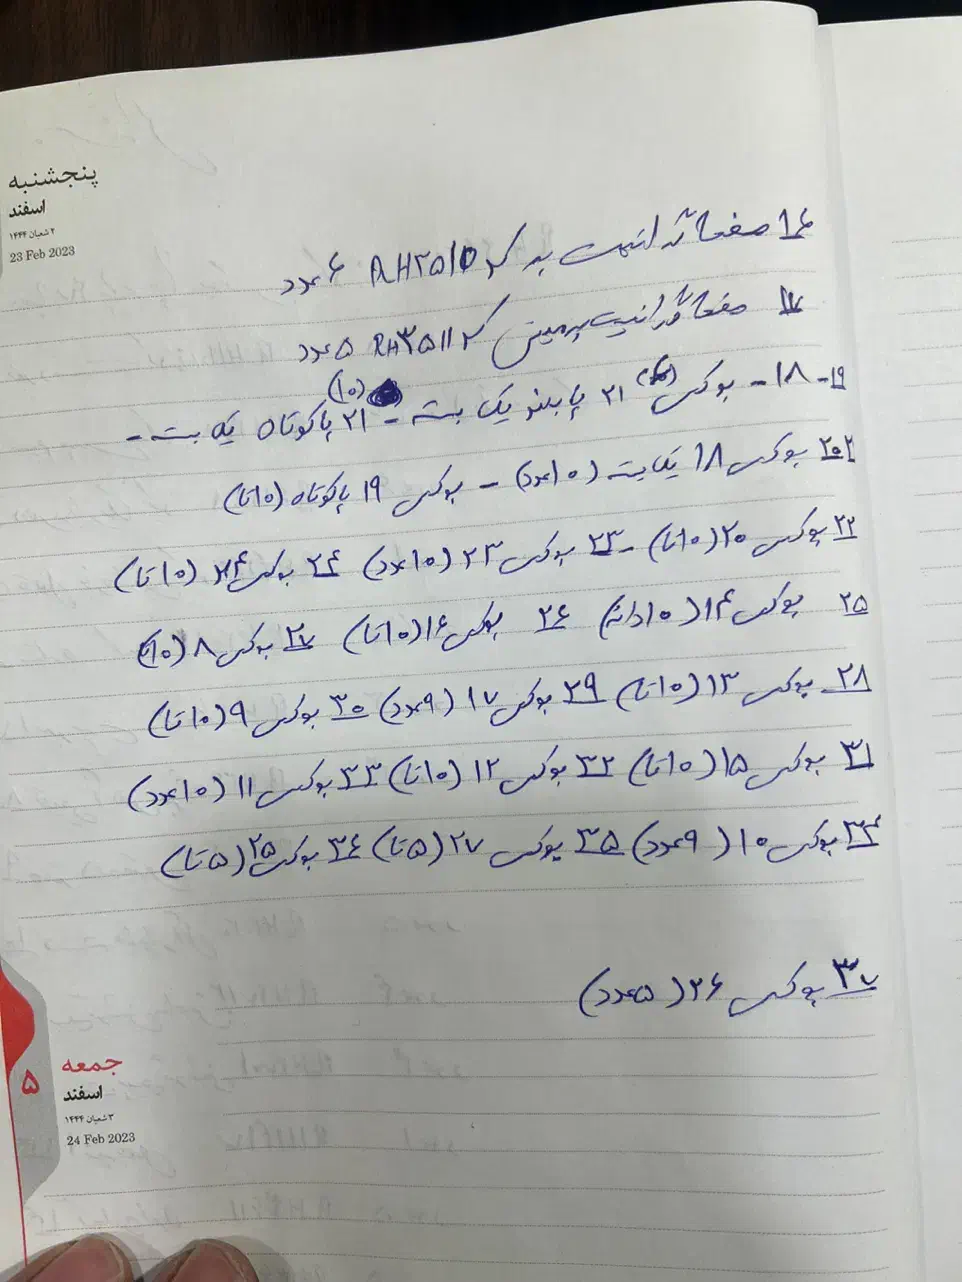 پنجشنبه
اسفند
۲ شعبان ۱۴۴۴
23 Feb 2023
۱۶ صفحه گرد RH3510 ۶ عدد
۱۷ صفحه گرد RH3511 ۵ عدد
۱۹-۱۸- بوکس ۲۱ پا بلند یک بسته (۱۰) - ۲۱ پا کوتاه یک بسته -
بوکس ۱۸ یک بسته (۱۰ عدد) - بوکس ۱۹ پا کوتاه (۱۰ تا)
۲۲ بوکس ۲۰ (۱۰ تا) - ۲۳ بوکس ۲۳ (۱۰ عدد) ۲۴ بوکس ۲۴ (۱۰ تا)
۲۵ بوکس ۱۴ (۱۰ دانه) ۲۶ بوکس ۱۶ (۱۰ تا) ۲۷ بوکس ۸ (۱۰)
۲۸ بوکس ۱۳ (۱۰ تا) ۲۹ بوکس ۱۷ (۹ عدد) ۳۰ بوکس ۹ (۱۰ تا)
۳۱ بوکس ۱۵ (۱۰ تا) ۳۲ بوکس ۱۲ (۱۰ تا) ۳۳ بوکس ۱۱ (۱۰ عدد)
۳۴ بوکس ۱۰ (۹ عدد) ۳۵ بوکس ۲۷ (۵ تا) ۳۶ بوکس ۲۵ (۵ تا)
۳۷ بوکس ۲۶ (۵ عدد)
جمعه
۵
اسفند
۳ شعبان ۱۴۴۴
24 Feb 2023